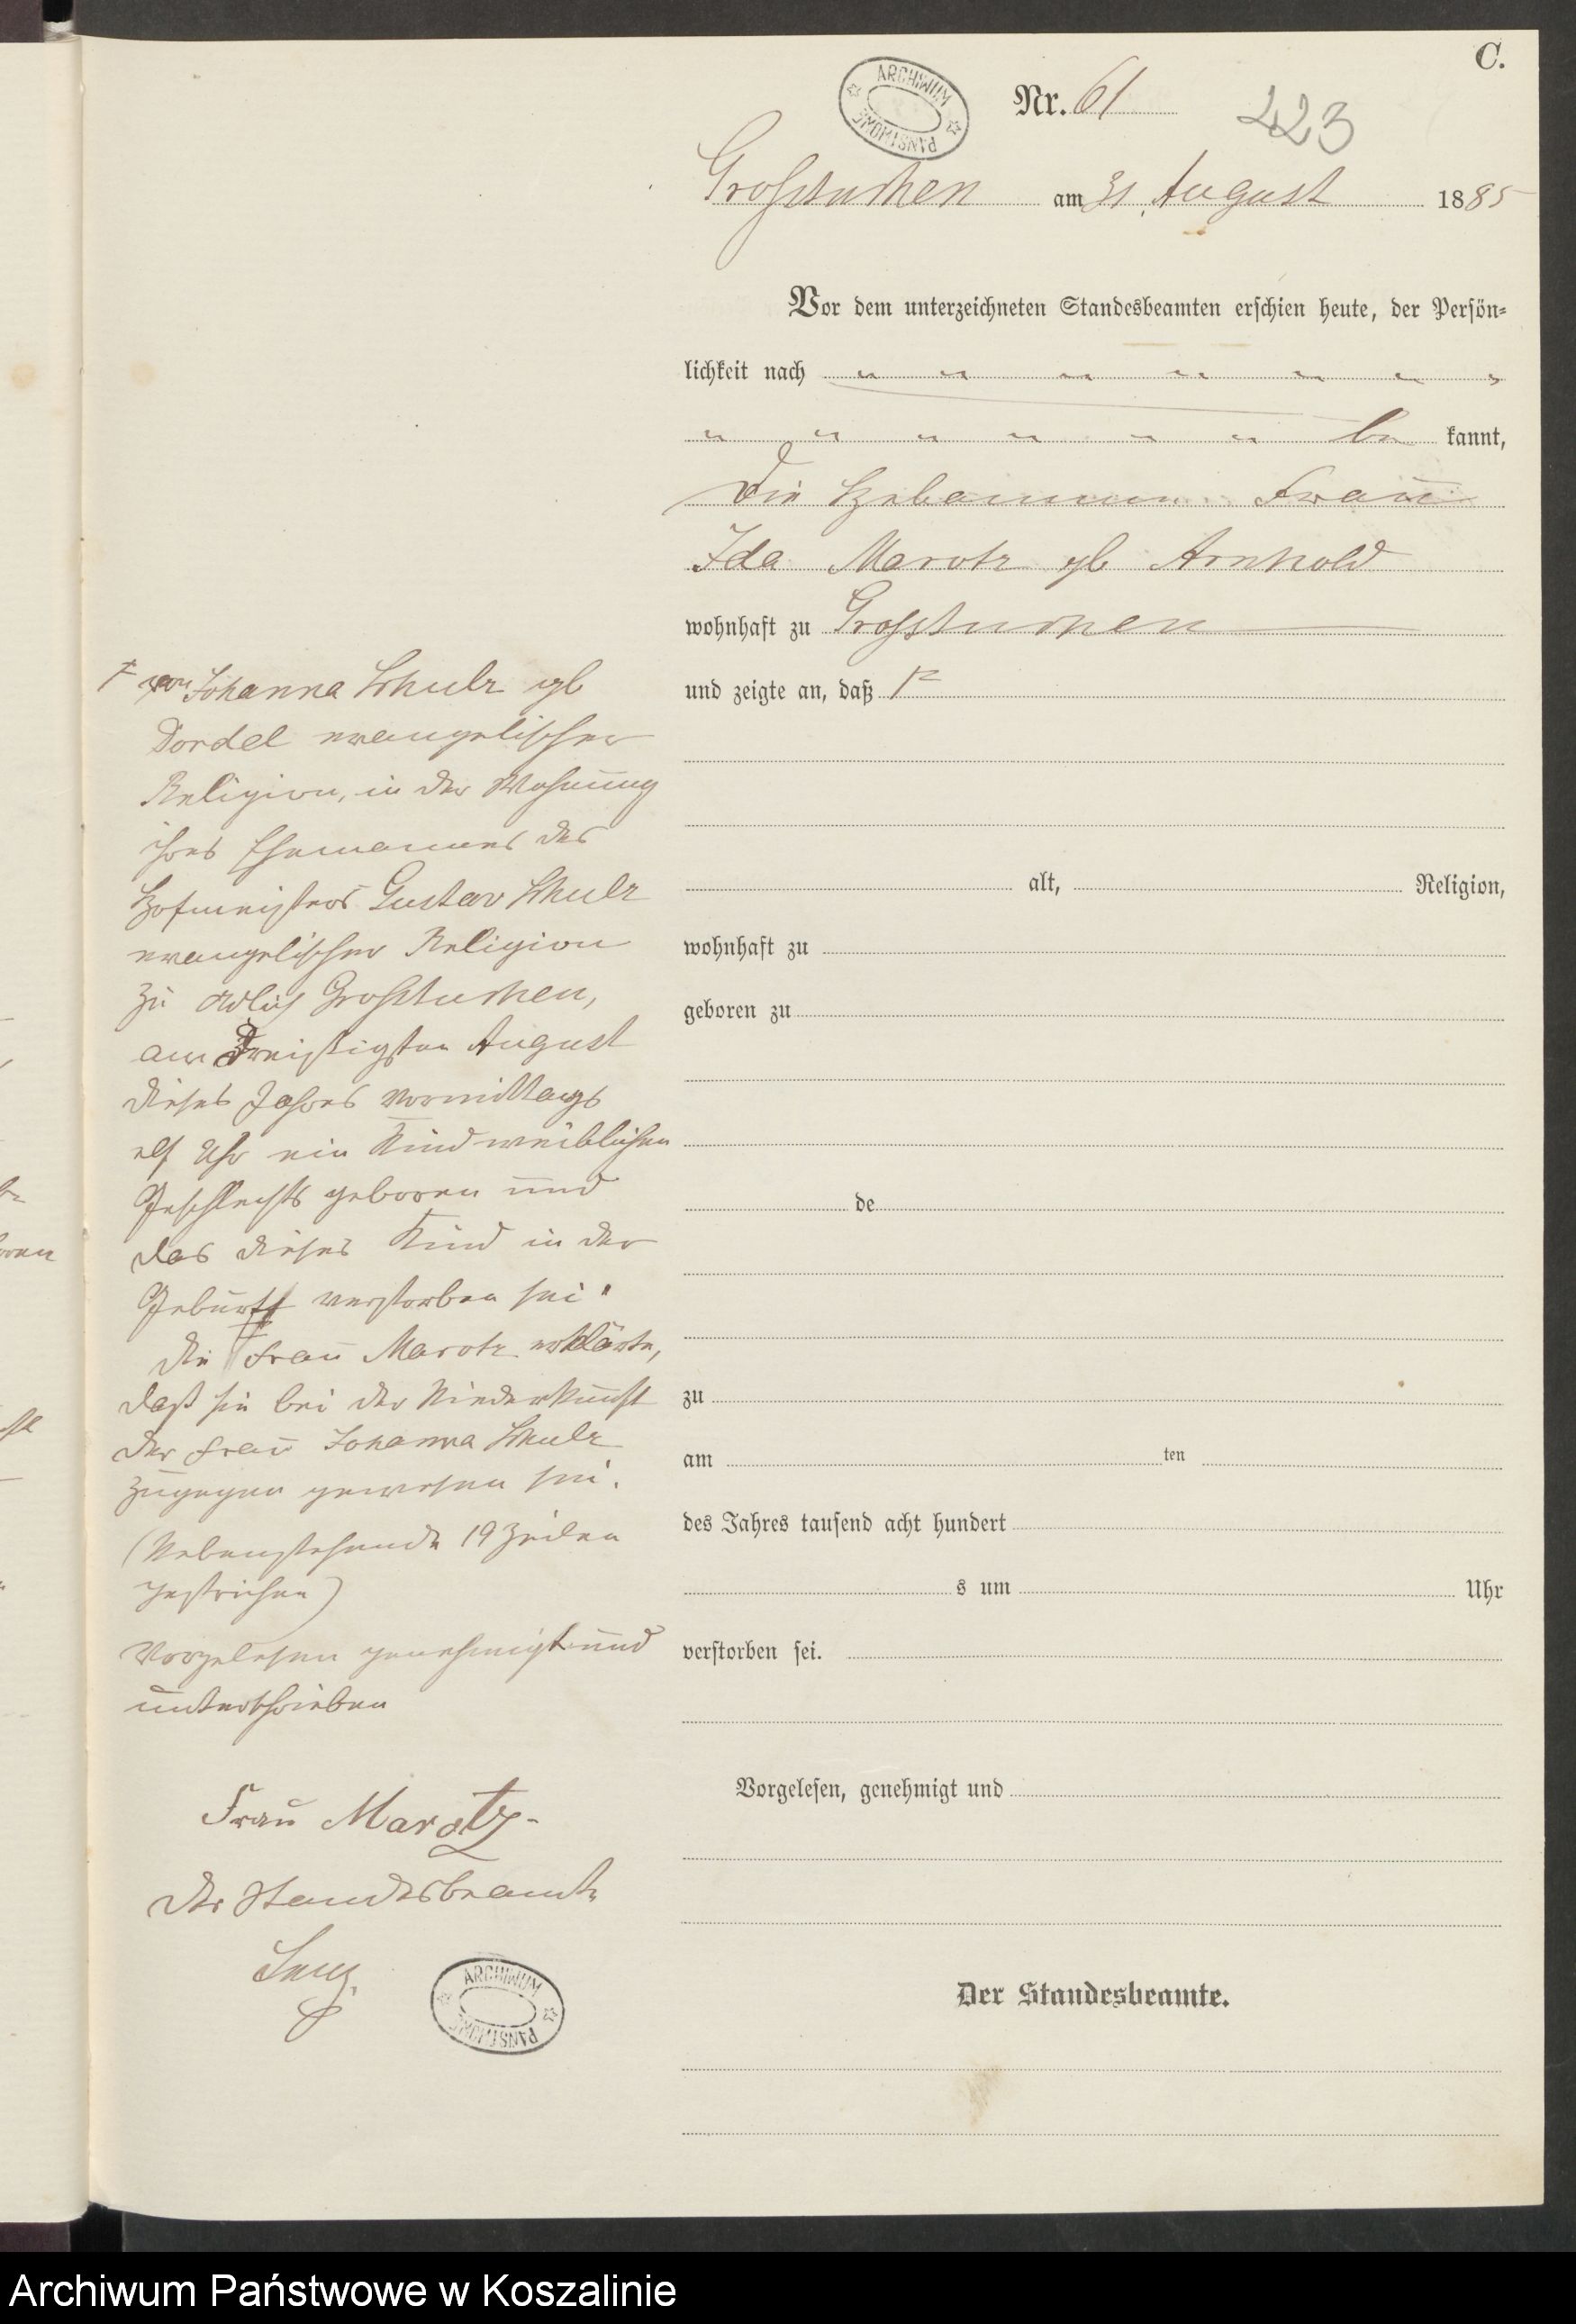 C.
ARCHIWUM PAŃSTWOWE
Nr. 61
423
Grosstuchen am 31. August 1885
Vor dem unterzeichneten Standesbeamten erschien heute, der Persön-
lichkeit nach
be kannt,
die Hebamme Frau
Ida Marotz gb Arnhold
wohnhaft zu Grosstuchen
und zeigte an, daß F
alt, Religion,
wohnhaft zu
geboren zu
de
zu
am ten
des Jahres tausend acht hundert
s um Uhr
verstorben sei.
Vorgelesen, genehmigt und
Der Standesbeamte.
F von Johanna Schulz gb
Dordel evangelischer
Religion, in der Wohnung
ihres Ehemannes des
Hofmeisters Gustav Schulz
evangelischer Religion
zu Adlig Grosstuchen,
am Dreißigsten August
dieses Jahres Vormittags
elf Uhr ein Kind weiblichen
Geschlechts geboren und
das dieses Kind in der
Geburt verstorben sei.
die Frau Marotz erklärte,
daß sie bei der Niederkunft
der Frau Johanna Schulz
zugegen gewesen sei.
(Nebenstehende 19 Zeilen
gestrichen)
Vorgelesen genehmigt und
unterschrieben
Frau Marotz
Der Standesbeamte
ARCHIWUM PAŃSTWOWE
Archiwum Państwowe w Koszalinie